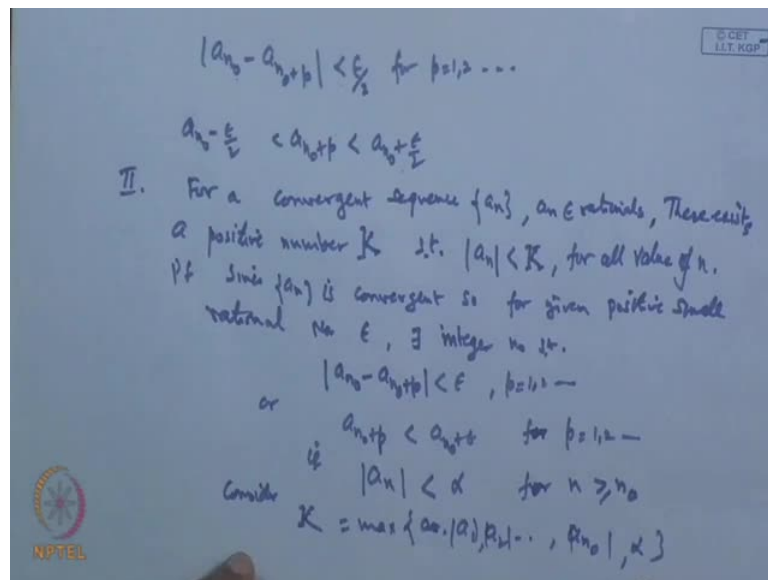 © CET
I.I.T. KGP
|a_{n_0} - a_{n_0+p}| < ε/2 for p=1,2 ....
a_{n_0} - ε/2 < a_{n_0+p} < a_{n_0} + ε/2
II. For a convergent sequence {a_n}, a_n ∈ rationals, There exists
a positive number K s.t. |a_n| < K, for all value of n.
Pf Since {a_n} is convergent so for given positive small
rational No ε, ∃ integer n_0 s.t.
|a_{n_0} - a_{n_0+p}| < ε, p=1,2 —
or a_{n_0+p} < a_{n_0} + ε for p=1,2 —
if |a_n| < α for n ≥ n_0
Consider K = max { |a_1|, |a_2| .. , |a_{n_0}|, α }
NPTEL